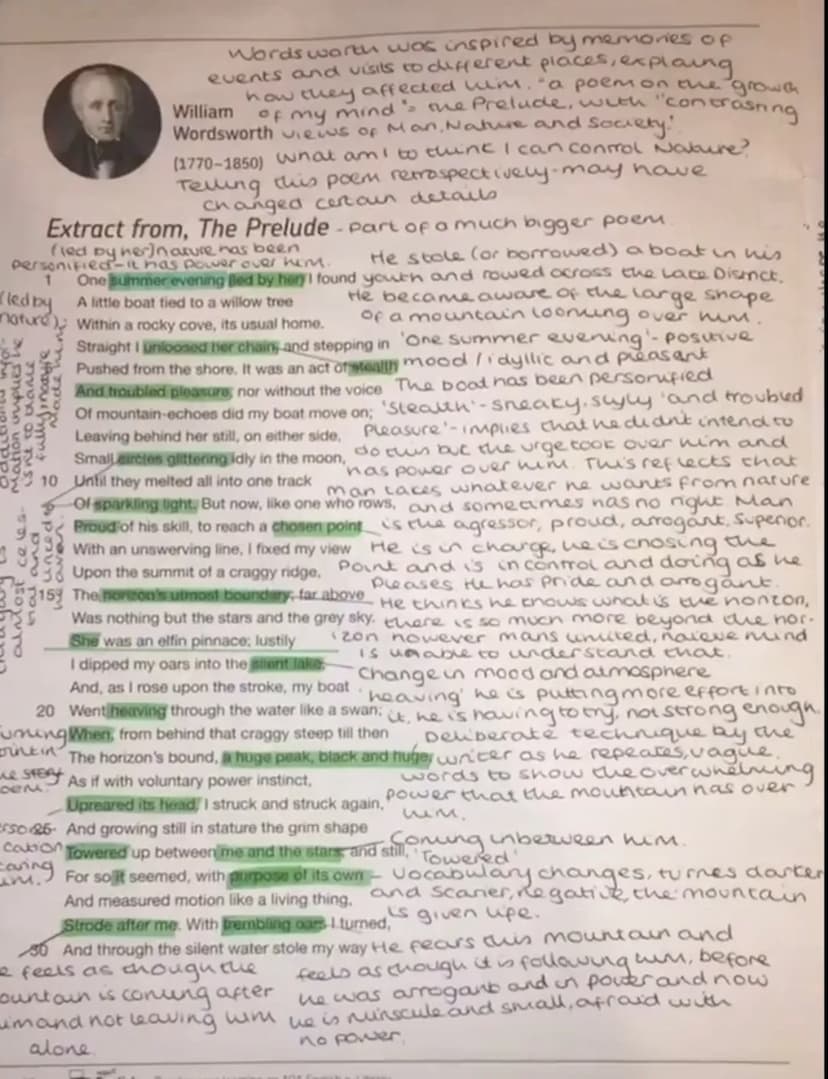 Wordsworth was inspired by memories of
events and visits to different places, explaing
how they affected him. "a poem on the growth
of my mind" = the Prelude, with "contrasting
views of Man, Nature and Society."
William
Wordsworth
(1770–1850)
What am I to think I can control Nature?
Telling this poem retrospectively - may have
changed certain details
Extract from, The Prelude - part of a much bigger poem.
(led by her) nature has been
personified - it has power over him.
He stole (or borrowed) a boat in his
youth and rowed across the Lake District.
He became aware of the large shape
of a mountain looming over him.
'One summer evening' - positive
mood / idyllic and pleasant
The boat has been personified
'Stealth' - sneaky, slyly 'and troubled
Pleasure' - implies that he didn't intend to
do this but the urge took over him and
has power over him. This reflects that
man takes whatever he wants from nature
and sometimes has no right Man
is the agressor, proud, arrogant, superior.
He is in charge, he is chosing the
Point and is in control and doing as he
pleases He has pride and arrogant.
He thinks he knows what is the horizon,
there is so much more beyond the hor-
izon however mans limited, naieve mind
is unable to understand that.
Change in mood and atmosphere
'heaving' he is putting more effort into
it, he is having to try, not strong enough.
Deliberate technique by the
writer as he repeates, vague
words to show the overwhelming
power that the mountain has over
him.
Coming inbetween him.
'Towered'
Vocabulary changes, turnes darker
and scarier, negative, the mountain
is given life.
He fears this mountain and
feels as though it is following him, before
he was arrogant and in power and now
he is minscule and small, afraid with
no power.
1 One summer evening (led by her) I found
A little boat tied to a willow tree
Within a rocky cove, its usual home.
Straight I unloosed her chain, and stepping in
Pushed from the shore. It was an act of stealth
And troubled pleasure, nor without the voice
Of mountain-echoes did my boat move on;
Leaving behind her still, on either side,
Small circles glittering idly in the moon,
10 Until they melted all into one track
Of sparkling light. But now, like one who rows,
Proud of his skill, to reach a chosen point
With an unswerving line, I fixed my view
Upon the summit of a craggy ridge,
15 The horizon's utmost boundary; far above
Was nothing but the stars and the grey sky.
She was an elfin pinnace; lustily
I dipped my oars into the silent lake,
And, as I rose upon the stroke, my boat
20 Went heaving through the water like a swan;
When, from behind that craggy steep till then
The horizon's bound, a huge peak, black and huge,
As if with voluntary power instinct,
Upreared its head. I struck and struck again,
25 And growing still in stature the grim shape
Towered up between me and the stars, and still,
For so it seemed, with purpose of its own
And measured motion like a living thing,
Strode after me. With trembling oars I turned,
30 And through the silent water stole my way
(led by
nature)
feels as though the
is coming after
and not leaving him
alone.